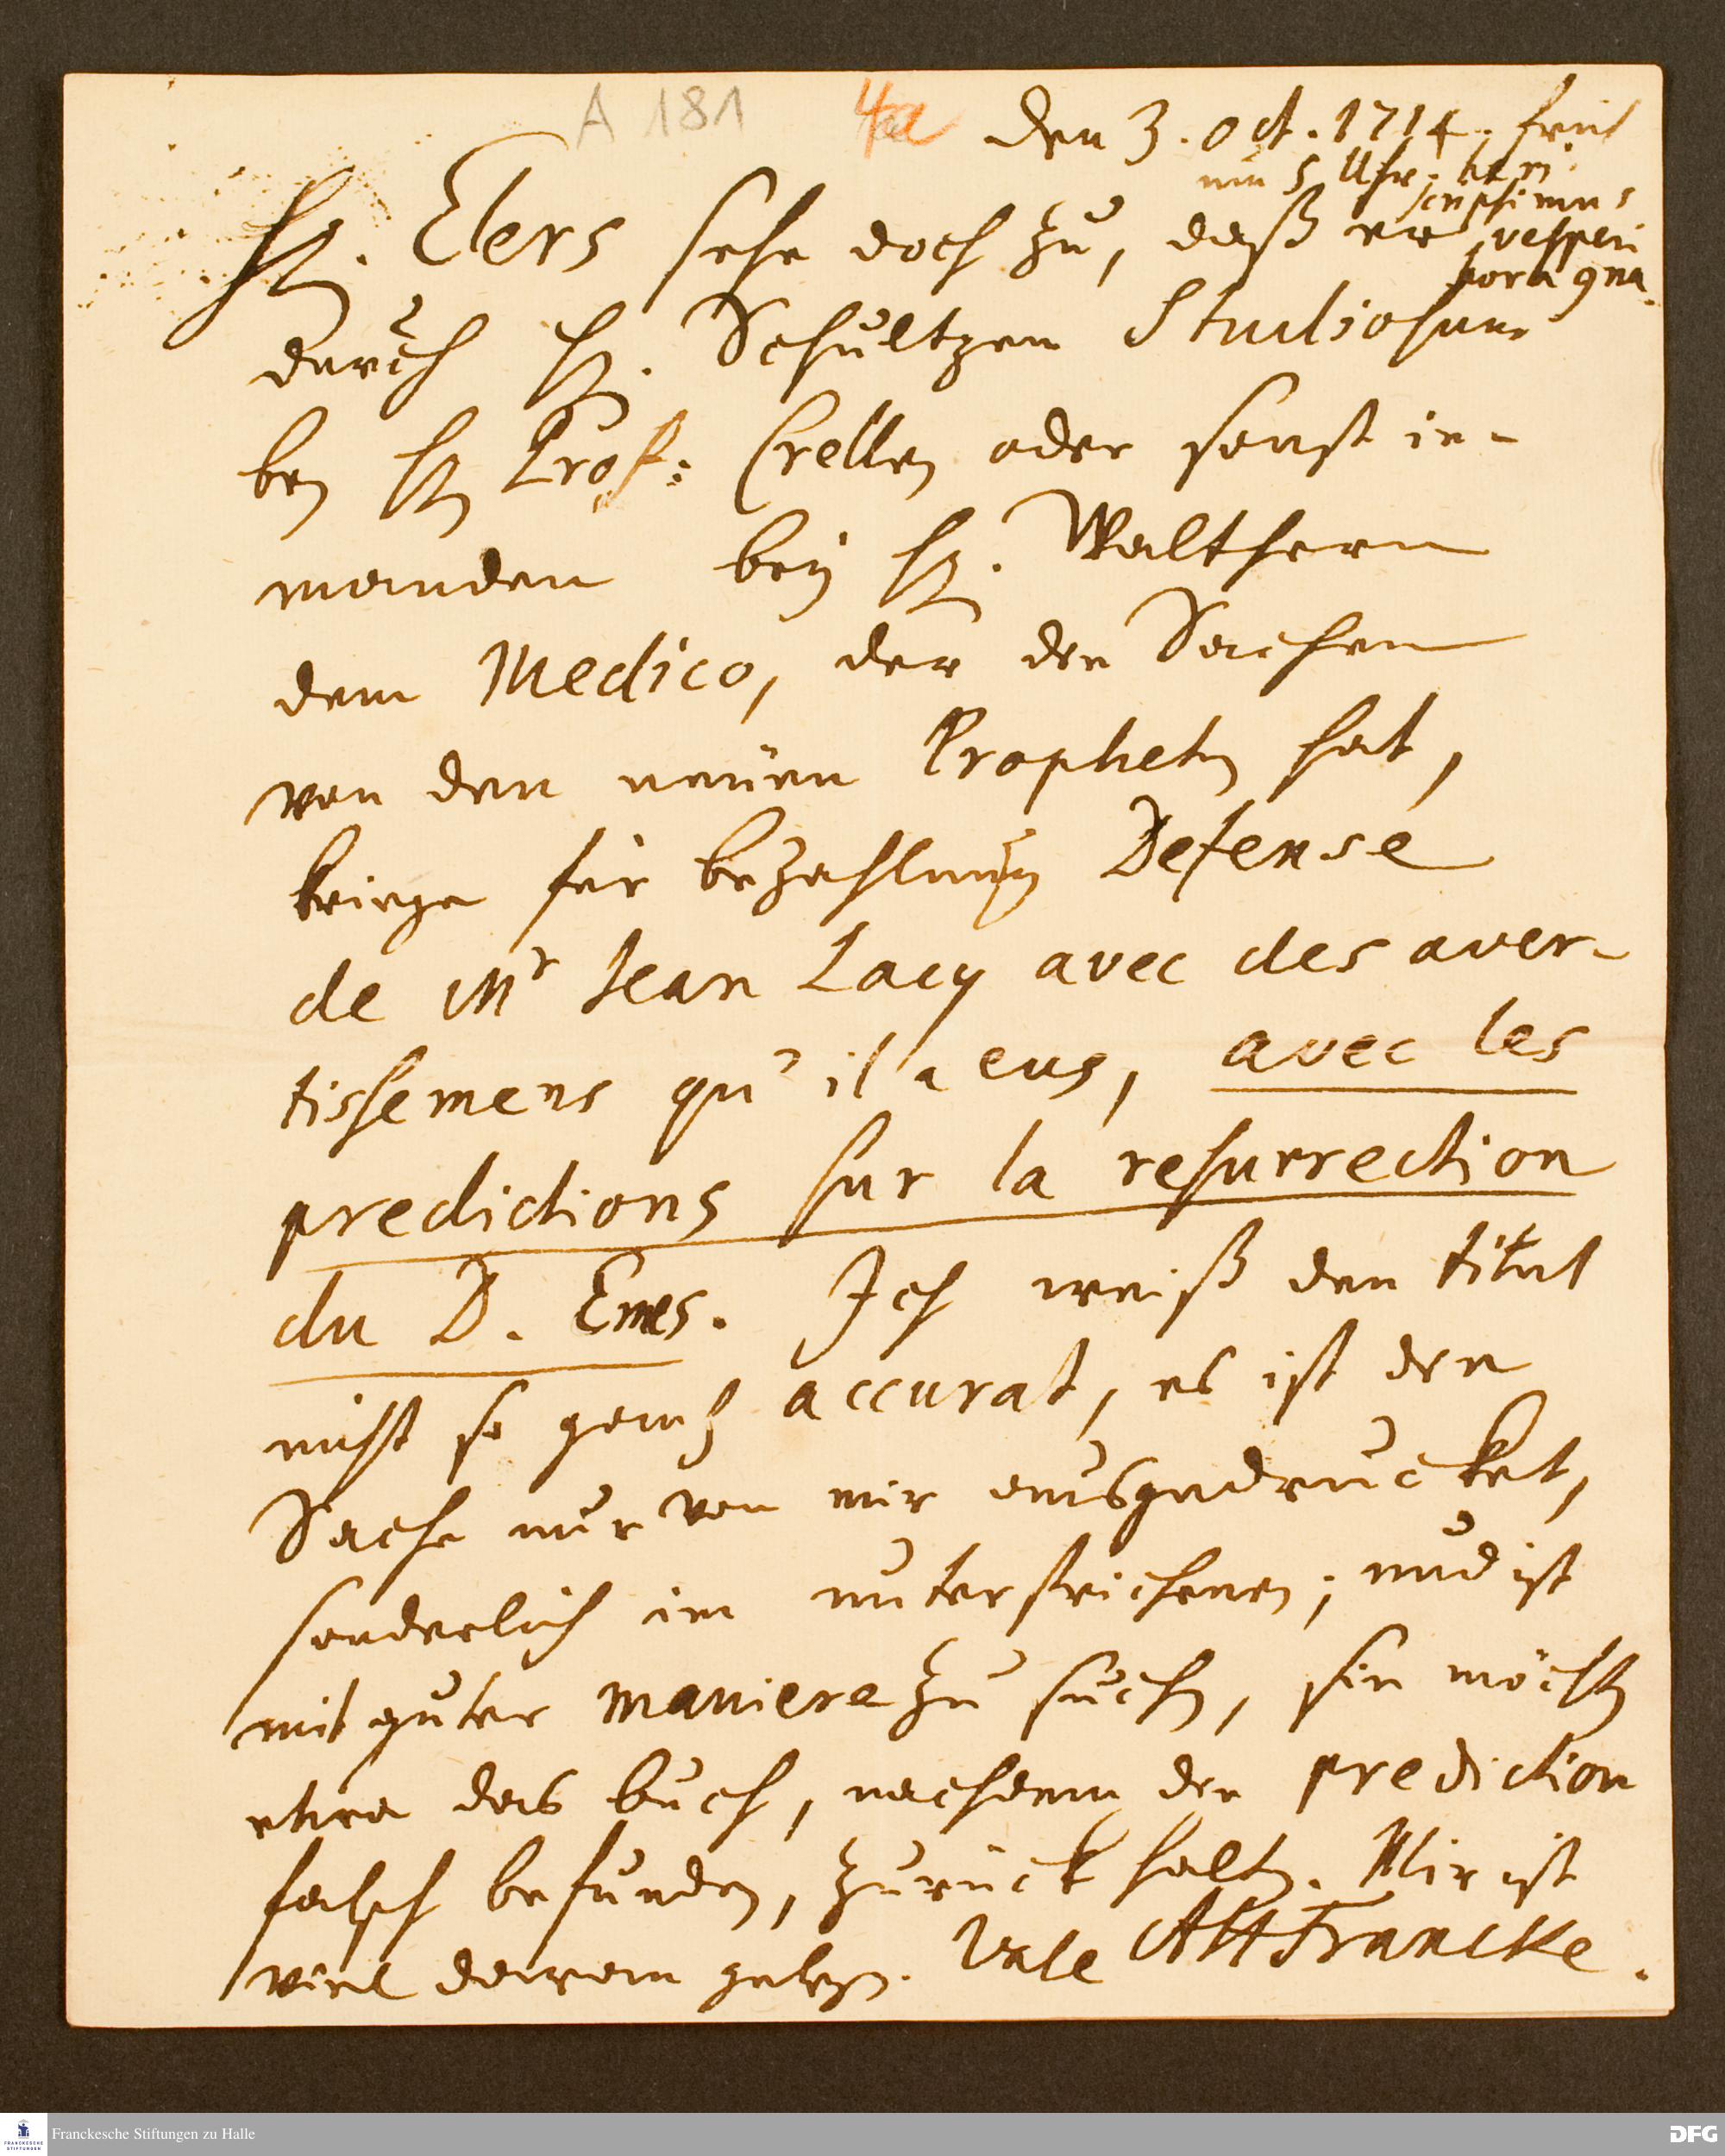 A 181 4a den 3. Oct. 1714. früh
um 5 Uhr. heri
scripsimus
H. Elers sehe doch zu, daß er vesperi
hora 9na.
durch H. Schultzen Studiosum
bey H. Prof: Crellen oder sonst ie-
manden bey H. Walthern
dem Medico, der die Sachen
von den neüen Propheten hat,
kriege für bezahlung Defense
de Mr Jean Lacy avec des aver-
tissemens qu'il a eus, avec les
predictions sur la resurrection
du D. Emes. Ich weiß den titul
nicht so gantz accurat, es ist die
Sache nur von mir ausgedrucket,
sonderlich im unterstrichenen; und ist
mit guter maniere zu suchen, sie möchten
etwa das buch, nachdem die prediction
falsch befunden, zurück halten. Mir ist
viel daran gelegen. Vale AHFrancke.
Franckesche Stiftungen zu Halle
DFG